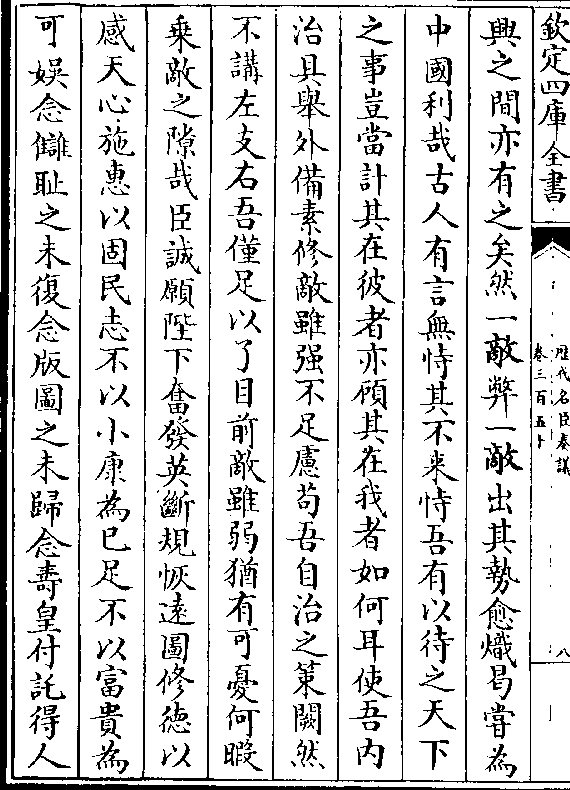 欽定四庫全書
歷代名臣奏議
卷三百五十
八
興之間亦有之矣然一敵弊一敵出其勢愈熾曷嘗為
中國利哉古人有言無恃其不来恃吾有以待之天下
之事豈當計其在彼者亦顧其在我者如何耳使吾内
治具舉外備素修敵雖强不足慮苟吾自治之策闕然
不講左支右吾僅足以了目前敵雖弱猶有可憂何暇
乗敵之隙哉臣誠願陛下奮發英斷規恢逺圖修徳以
感天心施惠以固民志不以小康為已足不以富貴為
可娯念讎恥之未復念版圖之未歸念壽皇付託得人